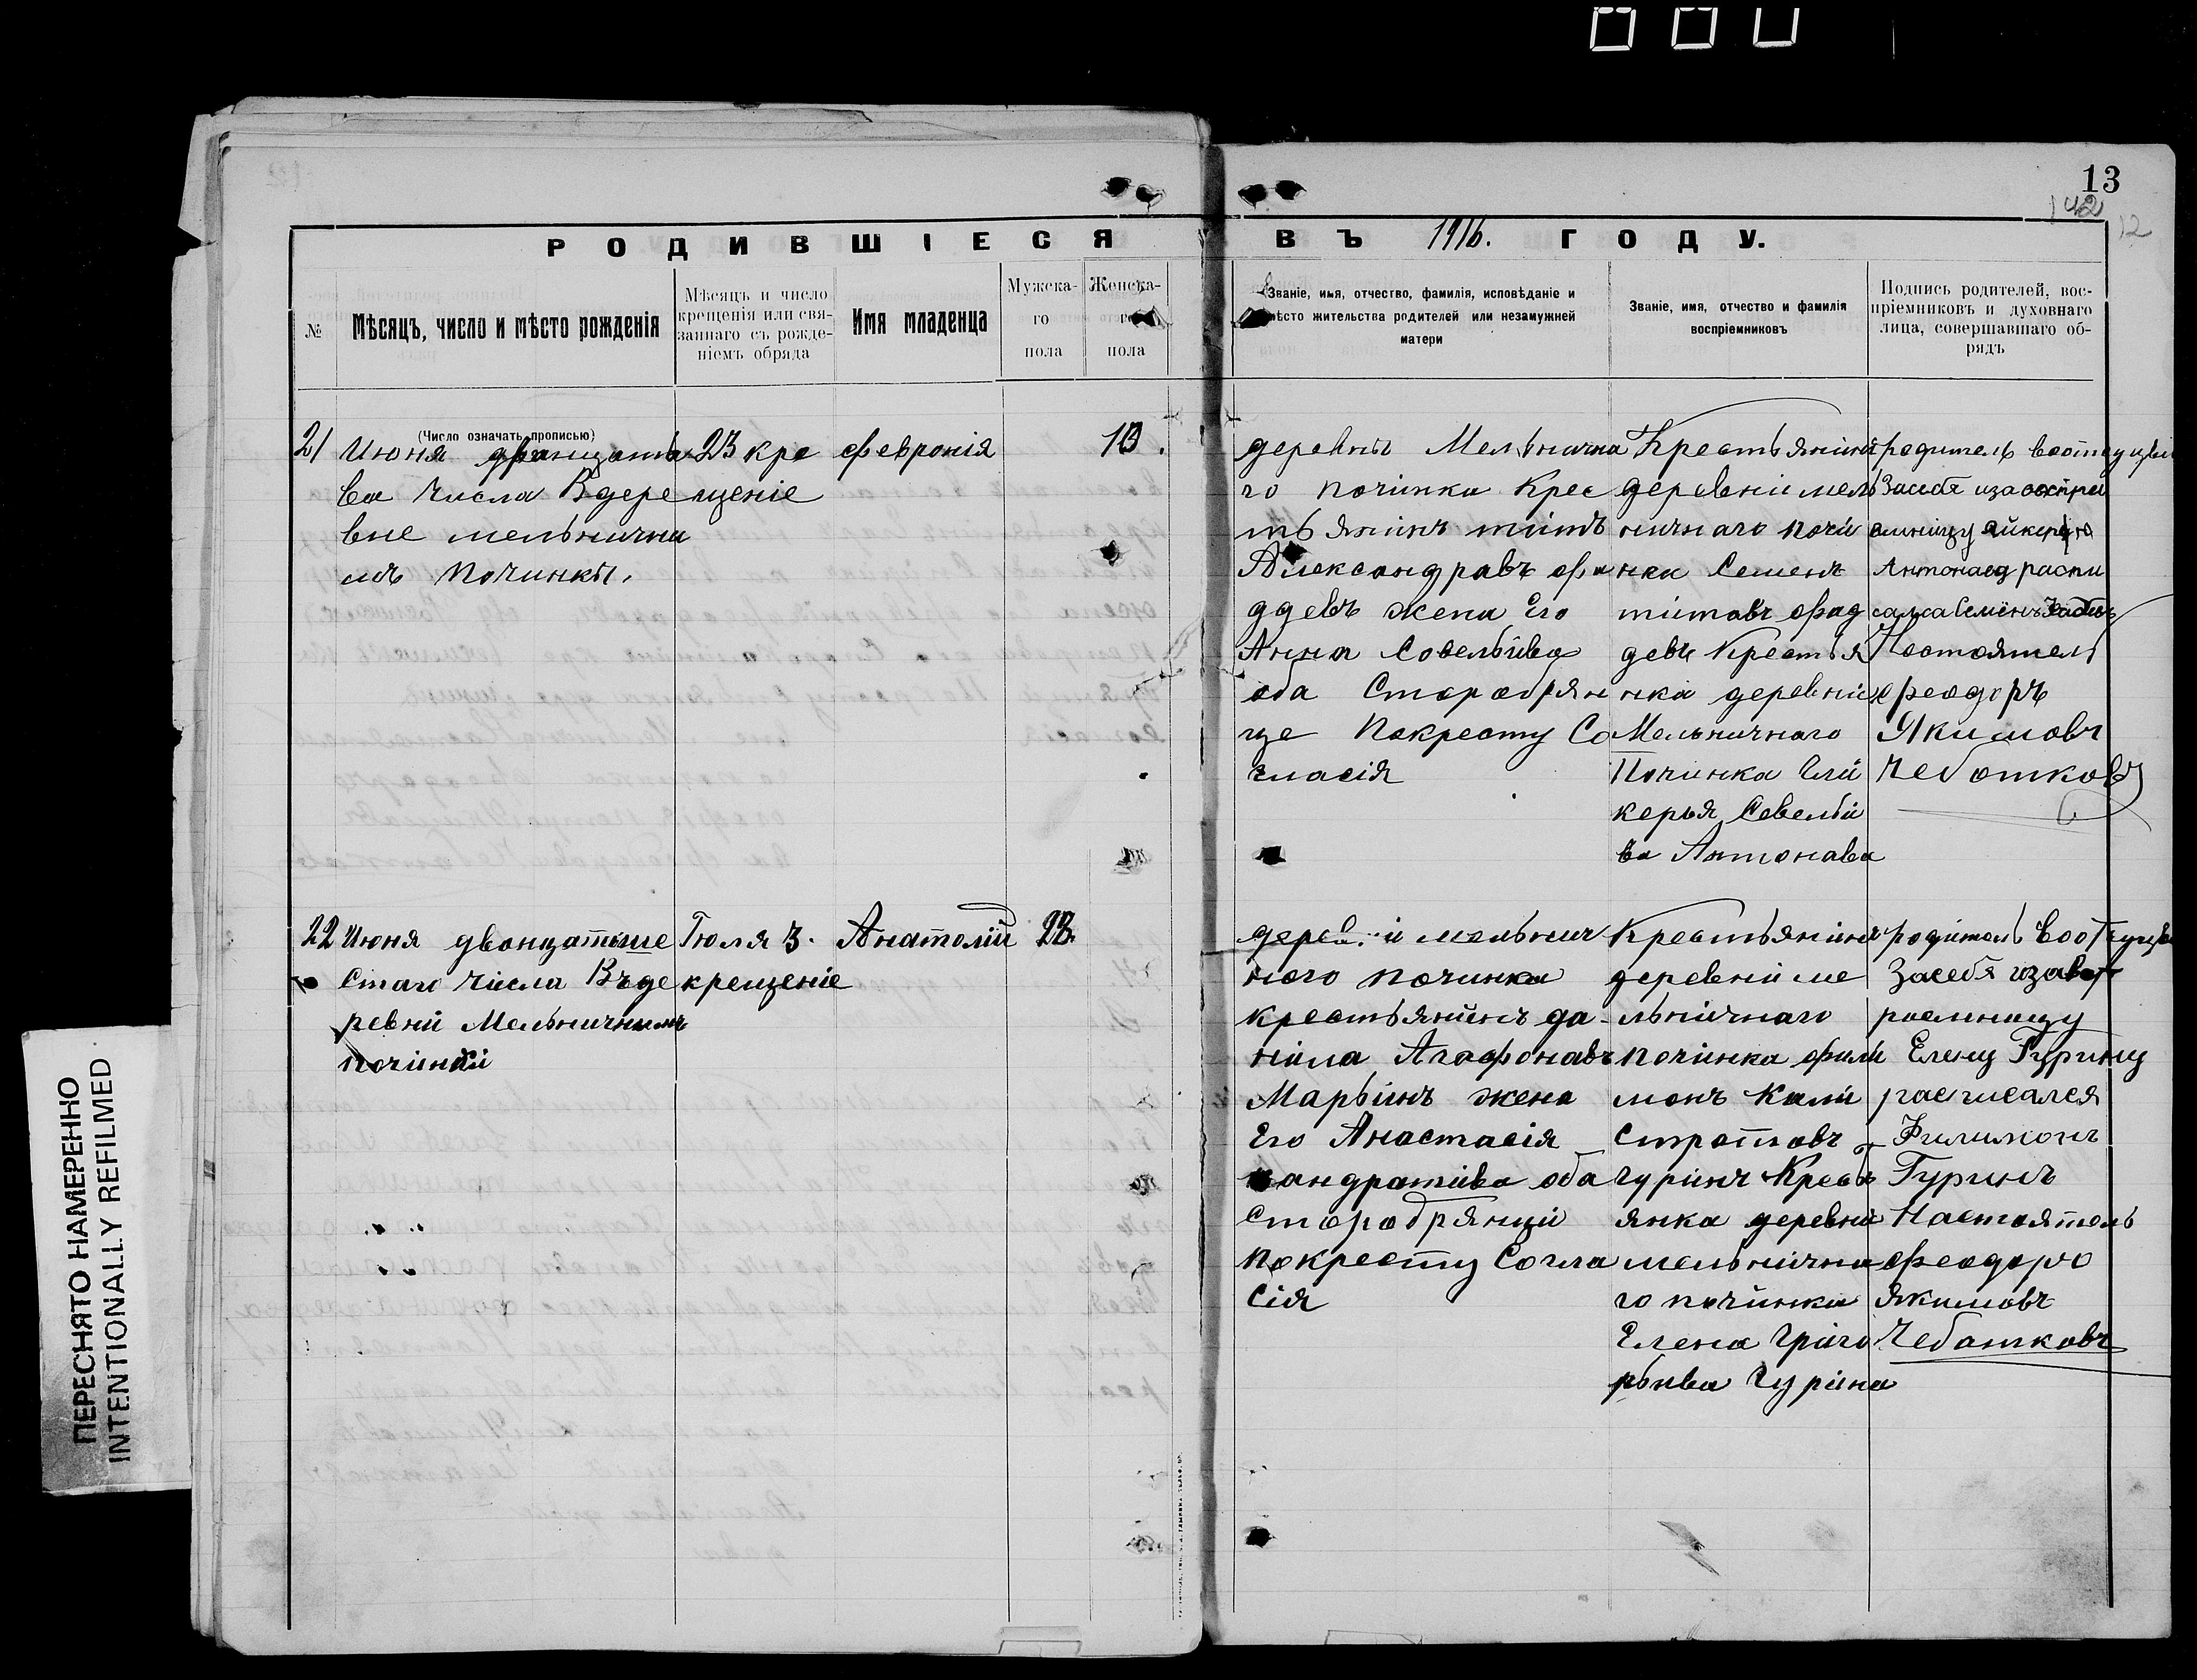 13
142
12
РОДИВШІЕСЯ ВЪ 1916. ГОДУ.
№
Мѣсяцъ, число и мѣсто рожденія
Мѣсяцъ и число
крещенія или свя-
заннаго съ рожде-
ніемъ обряда
Имя младенца
Мужска-
го
пола
Женска-
го
пола
Званіе, имя, отчество, фамилія, исповѣданіе и
мѣсто жительства родителей или незамужней
матери
Званіе, имя, отчество и фамилія
воспріемниковъ
Подпись родителей, вос-
пріемниковъ и духовнаго
лица, совершавшаго об-
рядъ
(Число означать прописью)
21
Июня двацать
ва Числа Вдере
вне мельнични
мъ Починкы.
23 кре
щеніе
февронія
13.
деревны Мельнична
го починка Крес
тьянинъ титъ
Александравъ фа
ддевъ жена Его
Анна Совельйва
оба Старобрян
це Покресту Со
гласія
Крестьянинъ
деревни мель
ничнаго почи
нка Семенъ
титовъ фад
девъ Крестья
нка деревни
Мельничнаго
Починка Гли
керья Савельй
ва Антонава
родитель
Засебя изавоспри
емницу
Антонаву распи
салса Семёнъ
Настоятель
феодоръ
Якимовъ
Чеботковъ
22
Июня двонцатьше
Стаго Числа Въде
ревни Мельничнымъ
починки
Іюля 3.
крещеніе
Анатолій
23.
деревни мельнич
ного починка
крестьянинъ да-
нила Агафонавъ
Марьинъ жена
Его Анастасія
кандратйва оба
Старобрянци
покресту Согла
сія
Крестьянинъ
деревни ме
льничнаго
починка фили
монъ Кали
стратовъ
гуринъ Кресть
янка деревни
мельнична
го починка
Елена Григо
рьива Гурина
родитель
Засебя изавос
приемницу
Елену Гурину
расписался
Филимонъ
Гуринъ
Настоятель
феодоръ
Якимовъ
Чебатковъ
ПЕРЕСНЯТО НАМЕРЕННО
INTENTIONALLY REFILMED